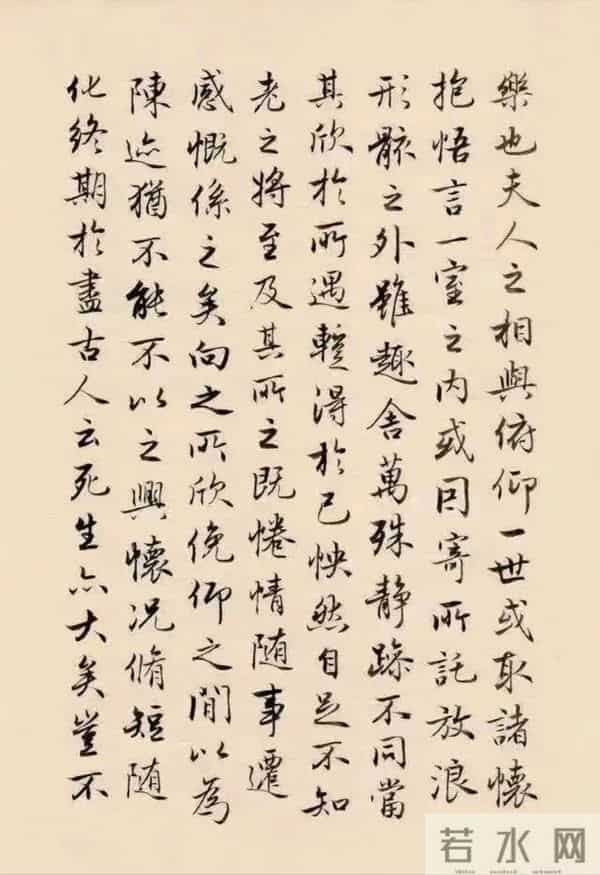 樂也夫人之相與俯仰一世或取諸懷
抱悟言一室之内或因寄所託放浪
形骸之外雖趣舍萬殊静躁不同當
其欣於所遇蹔得於己怏然自足不知
老之将至及其所之既惓情随事遷
感慨係之矣向之所欣俛仰之閒以為
陳迹猶不能不以之興懷況脩短随
化終期於盡古人云死生亦大矣豈不
若水网